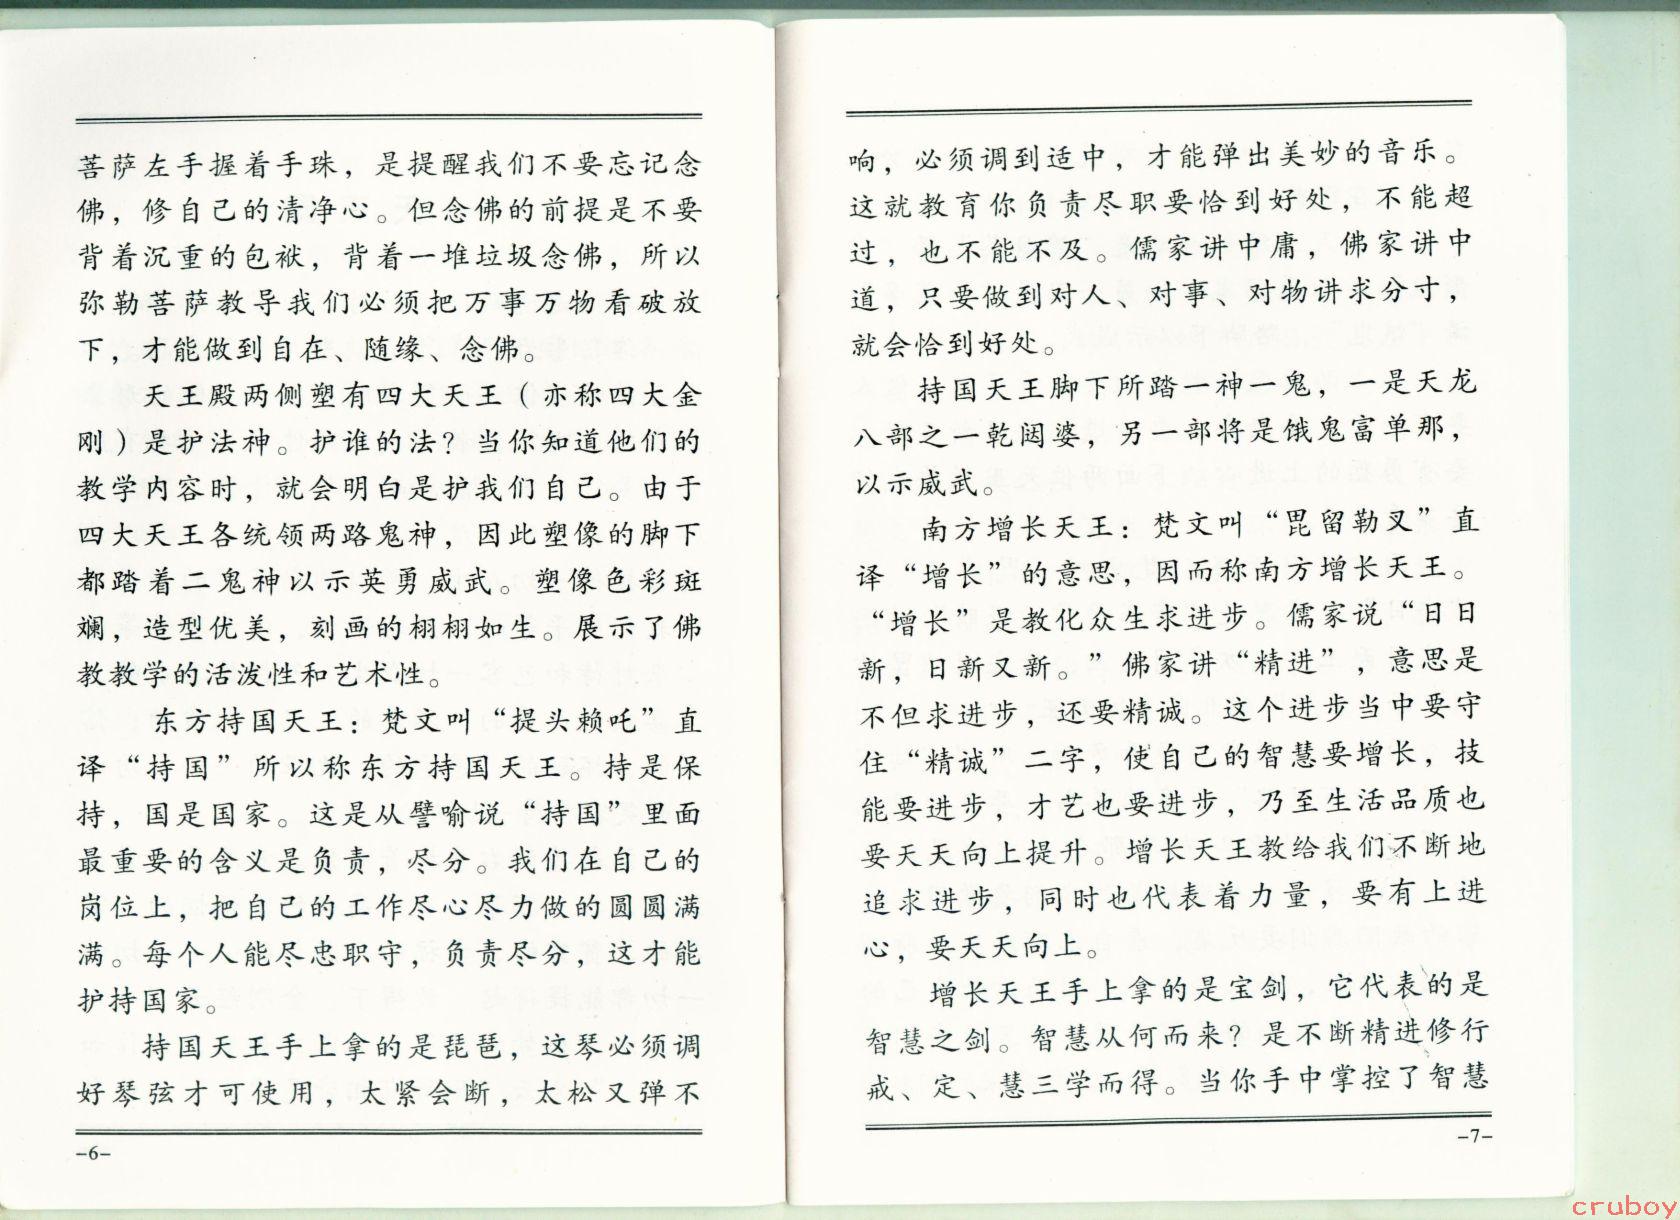 菩萨左手握着手珠，是提醒我们不要忘记念
佛，修自己的清净心。但念佛的前提是不要
背着沉重的包袱，背着一堆垃圾念佛，所以
弥勒菩萨教导我们必须把万事万物看破放
下，才能做到自在、随缘、念佛。
天王殿两侧塑有四大天王（亦称四大金
刚）是护法神。护谁的法？当你知道他们的
教学内容时，就会明白是护我们自己。由于
四大天王各统领两路鬼神，因此塑像的脚下
都踏着二鬼神以示英勇威武。塑像色彩斑
斓，造型优美，刻画的栩栩如生。展示了佛
教教学的活泼性和艺术性。
东方持国天王：梵文叫“提头赖吒”直
译“持国”所以称东方持国天王。持是保
持，国是国家。这是从譬喻说“持国”里面
最重要的含义是负责，尽分。我们在自己的
岗位上，把自己的工作尽心尽力做的圆圆满
满。每个人能尽忠职守，负责尽分，这才能
护持国家。
持国天王手上拿的是琵琶，这琴必须调
好琴弦才可使用，太紧会断，太松又弹不
-6-
响，必须调到适中，才能弹出美妙的音乐。
这就教育你负责尽职要恰到好处，不能超
过，也不能不及。儒家讲中庸，佛家讲中
道，只要做到对人、对事、对物讲求分寸，
就会恰到好处。
持国天王脚下所踏一神一鬼，一是天龙
八部之一乾闼婆，另一部将是饿鬼富单那，
以示威武。
南方增长天王：梵文叫“毘留勒叉”直
译“增长”的意思，因而称南方增长天王。
“增长”是教化众生求进步。儒家说“日日
新，日新又新。”佛家讲“精进”，意思是
不但求进步，还要精诚。这个进步当中要守
住“精诚”二字，使自己的智慧要增长，技
能要进步，才艺也要进步，乃至生活品质也
要天天向上提升。增长天王教给我们不断地
追求进步，同时也代表着力量，要有上进
心，要天天向上。
增长天王手上拿的是宝剑，它代表的是
智慧之剑。智慧从何而来？是不断精进修行
戒、定、慧三学而得。当你手中掌控了智慧
-7-
cruboy